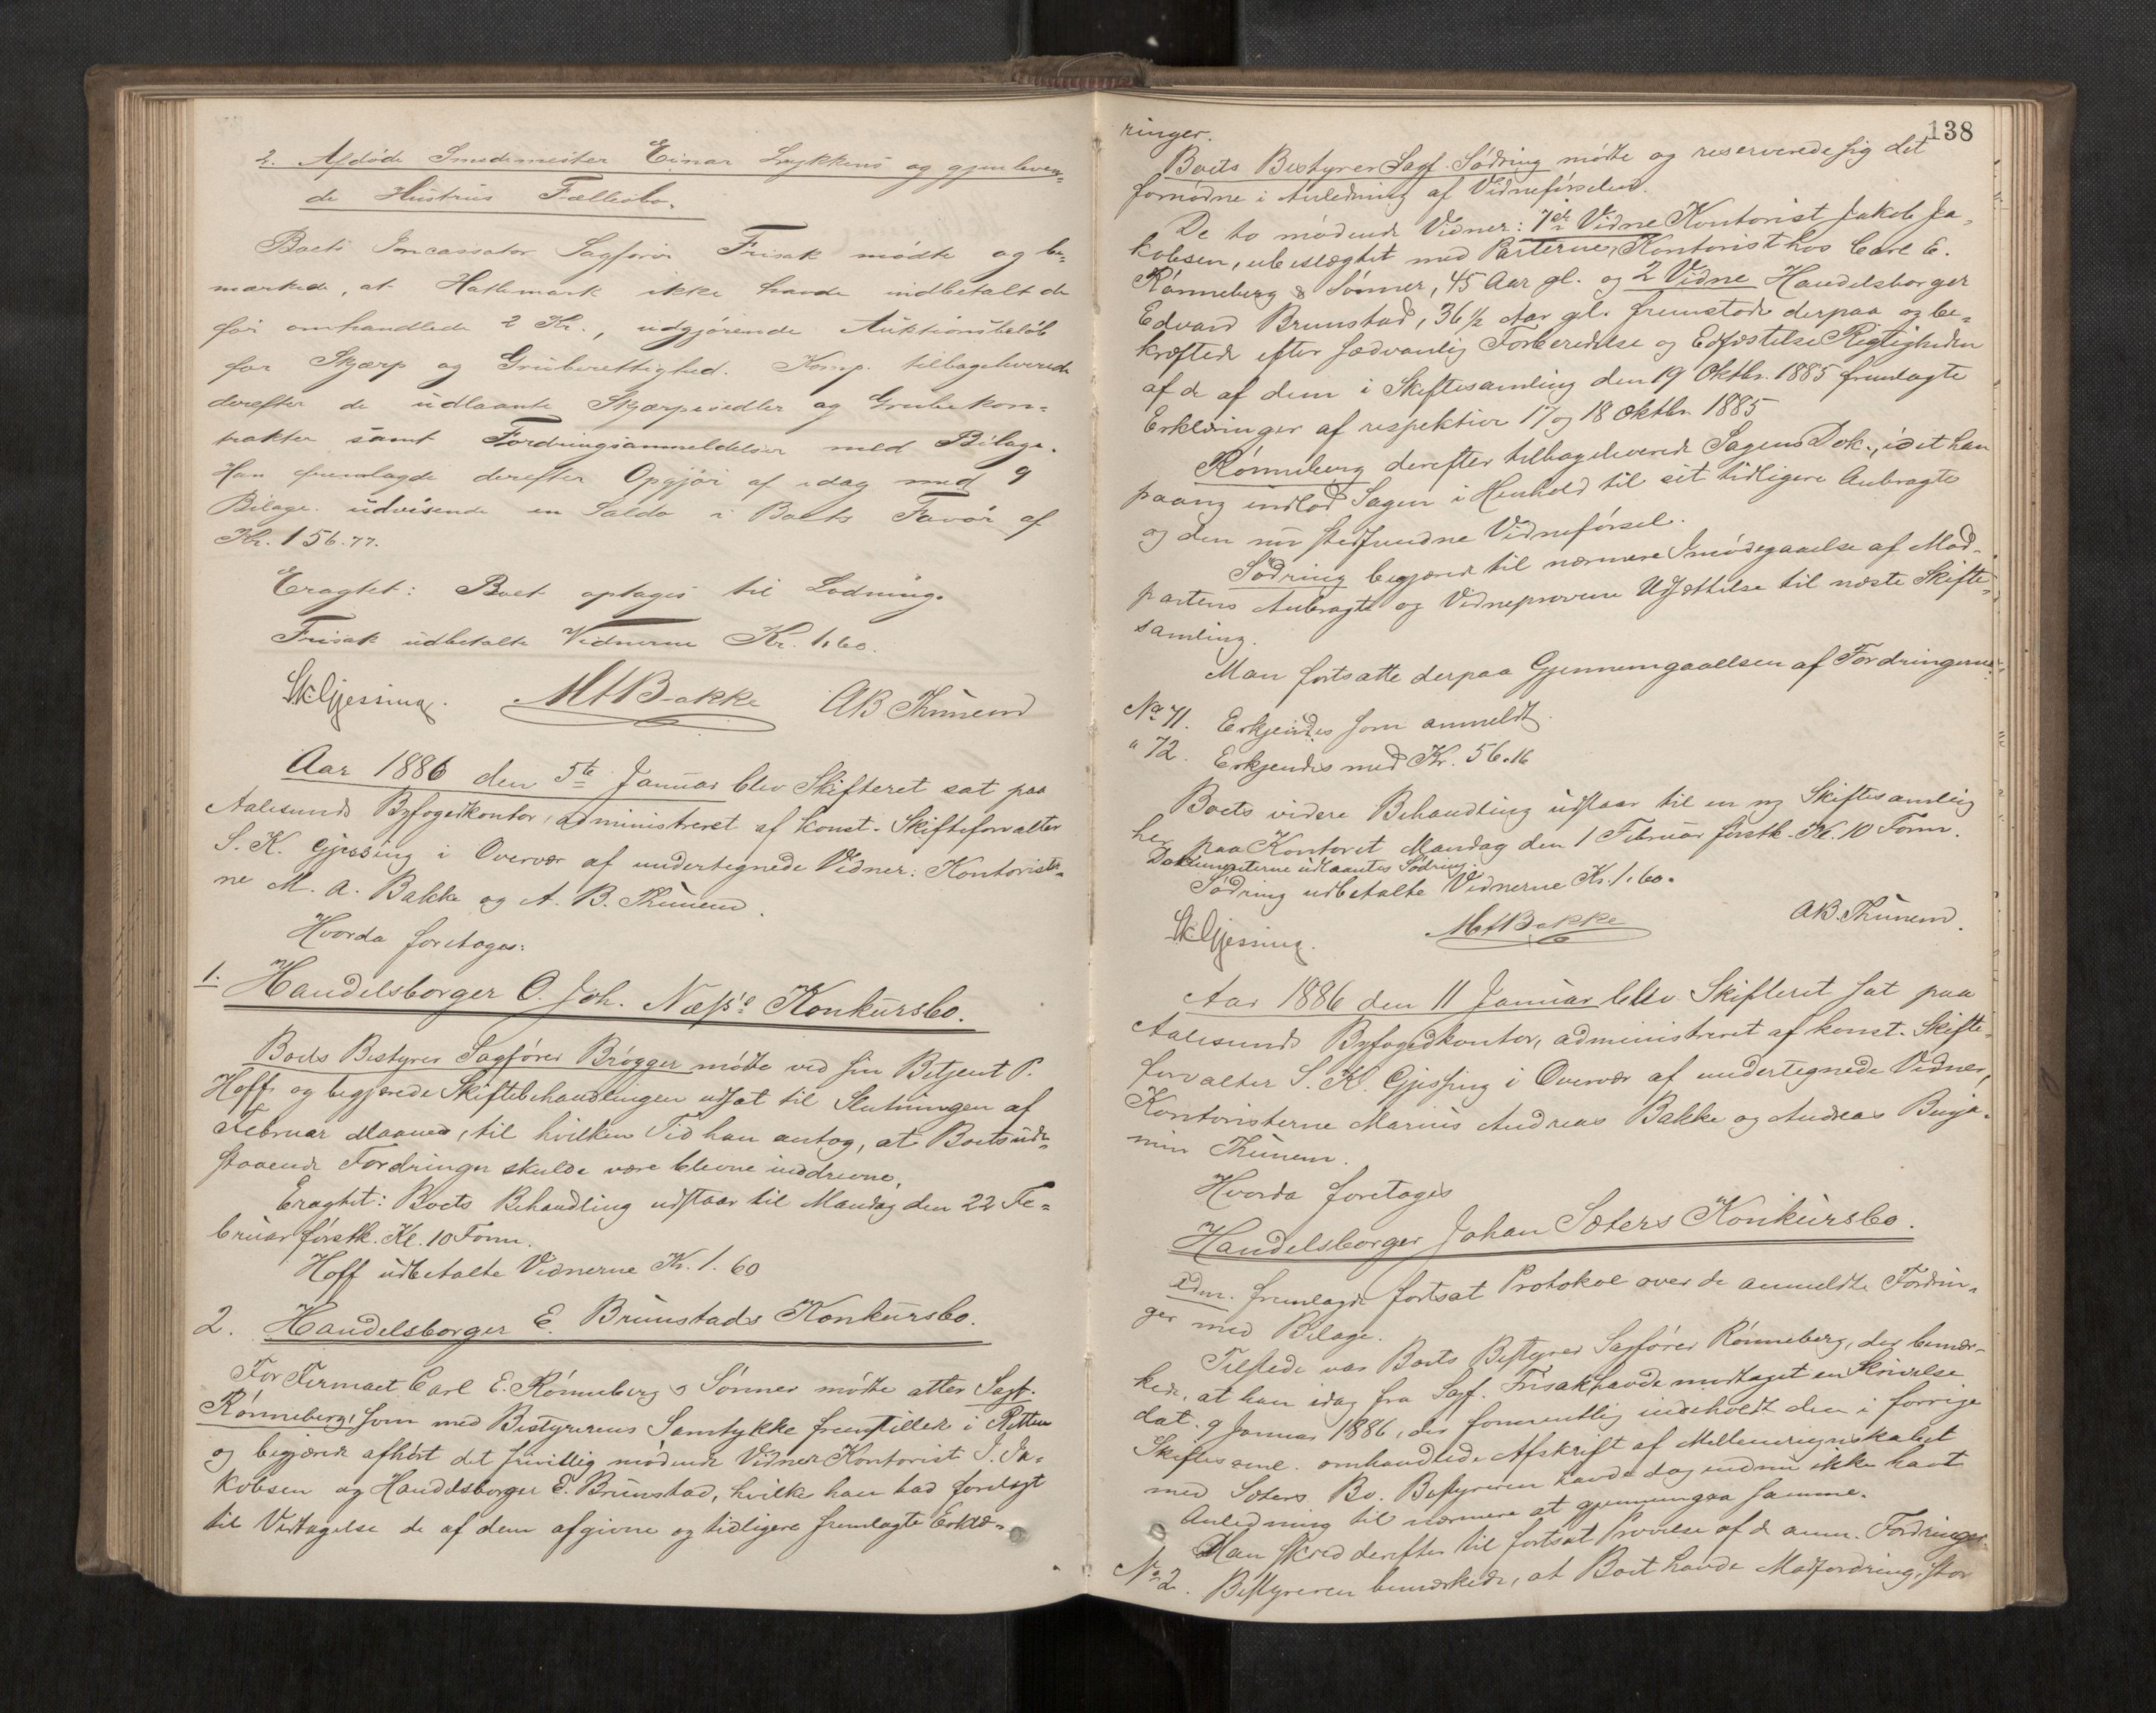 2. Afdøde Smedemester Einar Lykkens og gjenleven-
de Hustrus Fællesbo.
Boets Incassator Sagfører Frisak mødte og be-
mærkede, at Hatlemark ikke havde indbetalt de
før omhandlede 2 Kr., udgjørende Auktionsbeløb
for Skjærp og Gruberettighed. Komp. tilbageleverede
derefter de udlaante Skjærpesedler og Grubekon-
trakter samt Fordringsanmeldelser med Bilage.
Han fremlagde derefter Opgjør af idag med 9
Bilage udvisende en Saldo i Boets Favør af
Kr. 156.77.
Eragtet: Boet optages til Lodning.
Frisak udbetalte Vidnerne Kr. 1.60.
SKGjessing. MABakke AB Thunem
Aar 1886 den 5te Januar blev Skifteret sat paa
Aalesunds Byfogedkontor, administreret af konst. Skifteforvalter
S. K. Gjessing i Overvær af undertegnede Vidner: Kontoriste-
ne M. A. Bakke og A. B. Thunem.
Hvorda foretoges:
1. Handelsborger O. Joh. Næss's Konkursbo.
Boets Bestyrer Sagfører Brøgger mødte ved sin Betjent P.
Hoff og begjærede Skiftebehandlingen udsat til Slutningen af
Februar Maaned, til hvilken Tid han antog, at Boets ude-
staaende Fordringer skulde være blevne inddrevne.
Eragtet: Boets Behandling udstaar til Mandag den 22 Fe-
bruar førstk. Kl. 10 Form.
Hoff udbetalte Vidnerne Kr. 1.60
2. Handelsborger E. Brunstads Konkursbo.
For Firmaet Carl E. Rønneberg & Sønner mødte atter Sagf.
Rønneberg, som med Bestyrerens Samtykke fremstillede i Retten
og begjærede afhørt det frivillig mødende Vidner Kontorist J. Ja-
kobsen og Handelsborger E. Brunstad, hvilke han bad forelagt
til Vedtagelse de af dem afgivne og tidligere fremlagte Erklæ-
138
ringer.
Boets Bestyrer Sagf. Sødring mødte og reserverede sig det
fornødne i Anledning af Vidneførselen.
De to mødende Vidner: 1ste Vidne Kontorist Jakob Ja-
kobsen, ubeslægtet med Parterne, Kontorist hos Carl E.
Rønneberg & Sønner, 45 Aar gl. og 2 Vidne Handelsborger
Edvard Brunstad, 36 1/2 Aar gl. fremstode derpaa og be-
kræftede efter sædvanlig Forberedelse og Edfæstelse Rigtigheden
af de af dem i Skiftesamling den 19 Oktbr. 1885 fremlagte
Erklæringer af respektive 17 og 18 Oktbr 1885
Rønneberg derefter tilbageleverede Sagens Dok., idet han
paany indlod Sagen i Henhold til sit tidligere Anbragte
og den nu stedfundne Vidneførsel.
Sødring begjærede til nærmere Imødegaaelse af Mod-
partens Anbragte og Vidneprovene Udsættelse til næste Skifte-
samling.
Man fortsatte derpaa Gjennemgaaelsen af Fordringerne:
No 71. Erkjendtes som anmeldt.
" 72. Erkjendtes med Kr. 56.16
Boets videre Behandling udstaar til en ny Skiftesamling
her paa Kontoret Mandag den 1 Februar førstk. Kl. 10 Form.
Dokumenterne udlaantes Sødring.
Sødring udbetalte Vidnerne Kr. 1.60.
SKGjessing. MABakke AB. Thunem.
Aar 1886 den 11 Januar blev Skifteret sat paa
Aalesunds Byfogedkontor, administreret af konst. Skifte-
forvalter S. K. Gjessing i Overvær af undertegnede Vidner,
Kontoristerne Marius Andreas Bakke og Andreas Benja-
min Thunem.
Hvorda foretoges
Handelsborger Johan Sæters Konkursbo.
Adm. fremlagde fortsat Protokol over de anmeldte Fordrin-
ger med Bilage.
Tilstede var Boets Bestyrer Sagfører Rønneberg, der bemær-
kede, at han idag fra Sagf. Frisak havde modtaget en Skrivelse
dat. 9 Januar 1886, der formentlig indeholdt den i forrige
Skiftesaml. omhandlede Afskrift af Mellemregnskabet
med Sæters Bo. Bestyreren havde dog endnu ikke havt
Anledning til nærmere at gjennemgaa samme.
Man skred derefter til fortsat Prøvelse af de anm. Fordringer.
No 2. Bestyreren bemærkede, at Boet havde Modfordring, stor